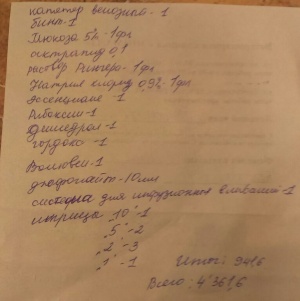 катетер венозный - 1
бинт - 1
Глюкоза 5% - 1 фл
актрапид 0,1
раствор Рингера - 1 фл
Натрия хлорид 0,9% - 1 фл
Эссенциале - 1
Рибоксин - 1
Димедрол - 1
гордокс - 1
Волювен - 1
- 10 мл
система для инфузионных вливаний - 1
шприцы "10" - 1
"5" - 2
"2" - 3
"1" - 1
Итог: 941,6
Всего: 4'361,6